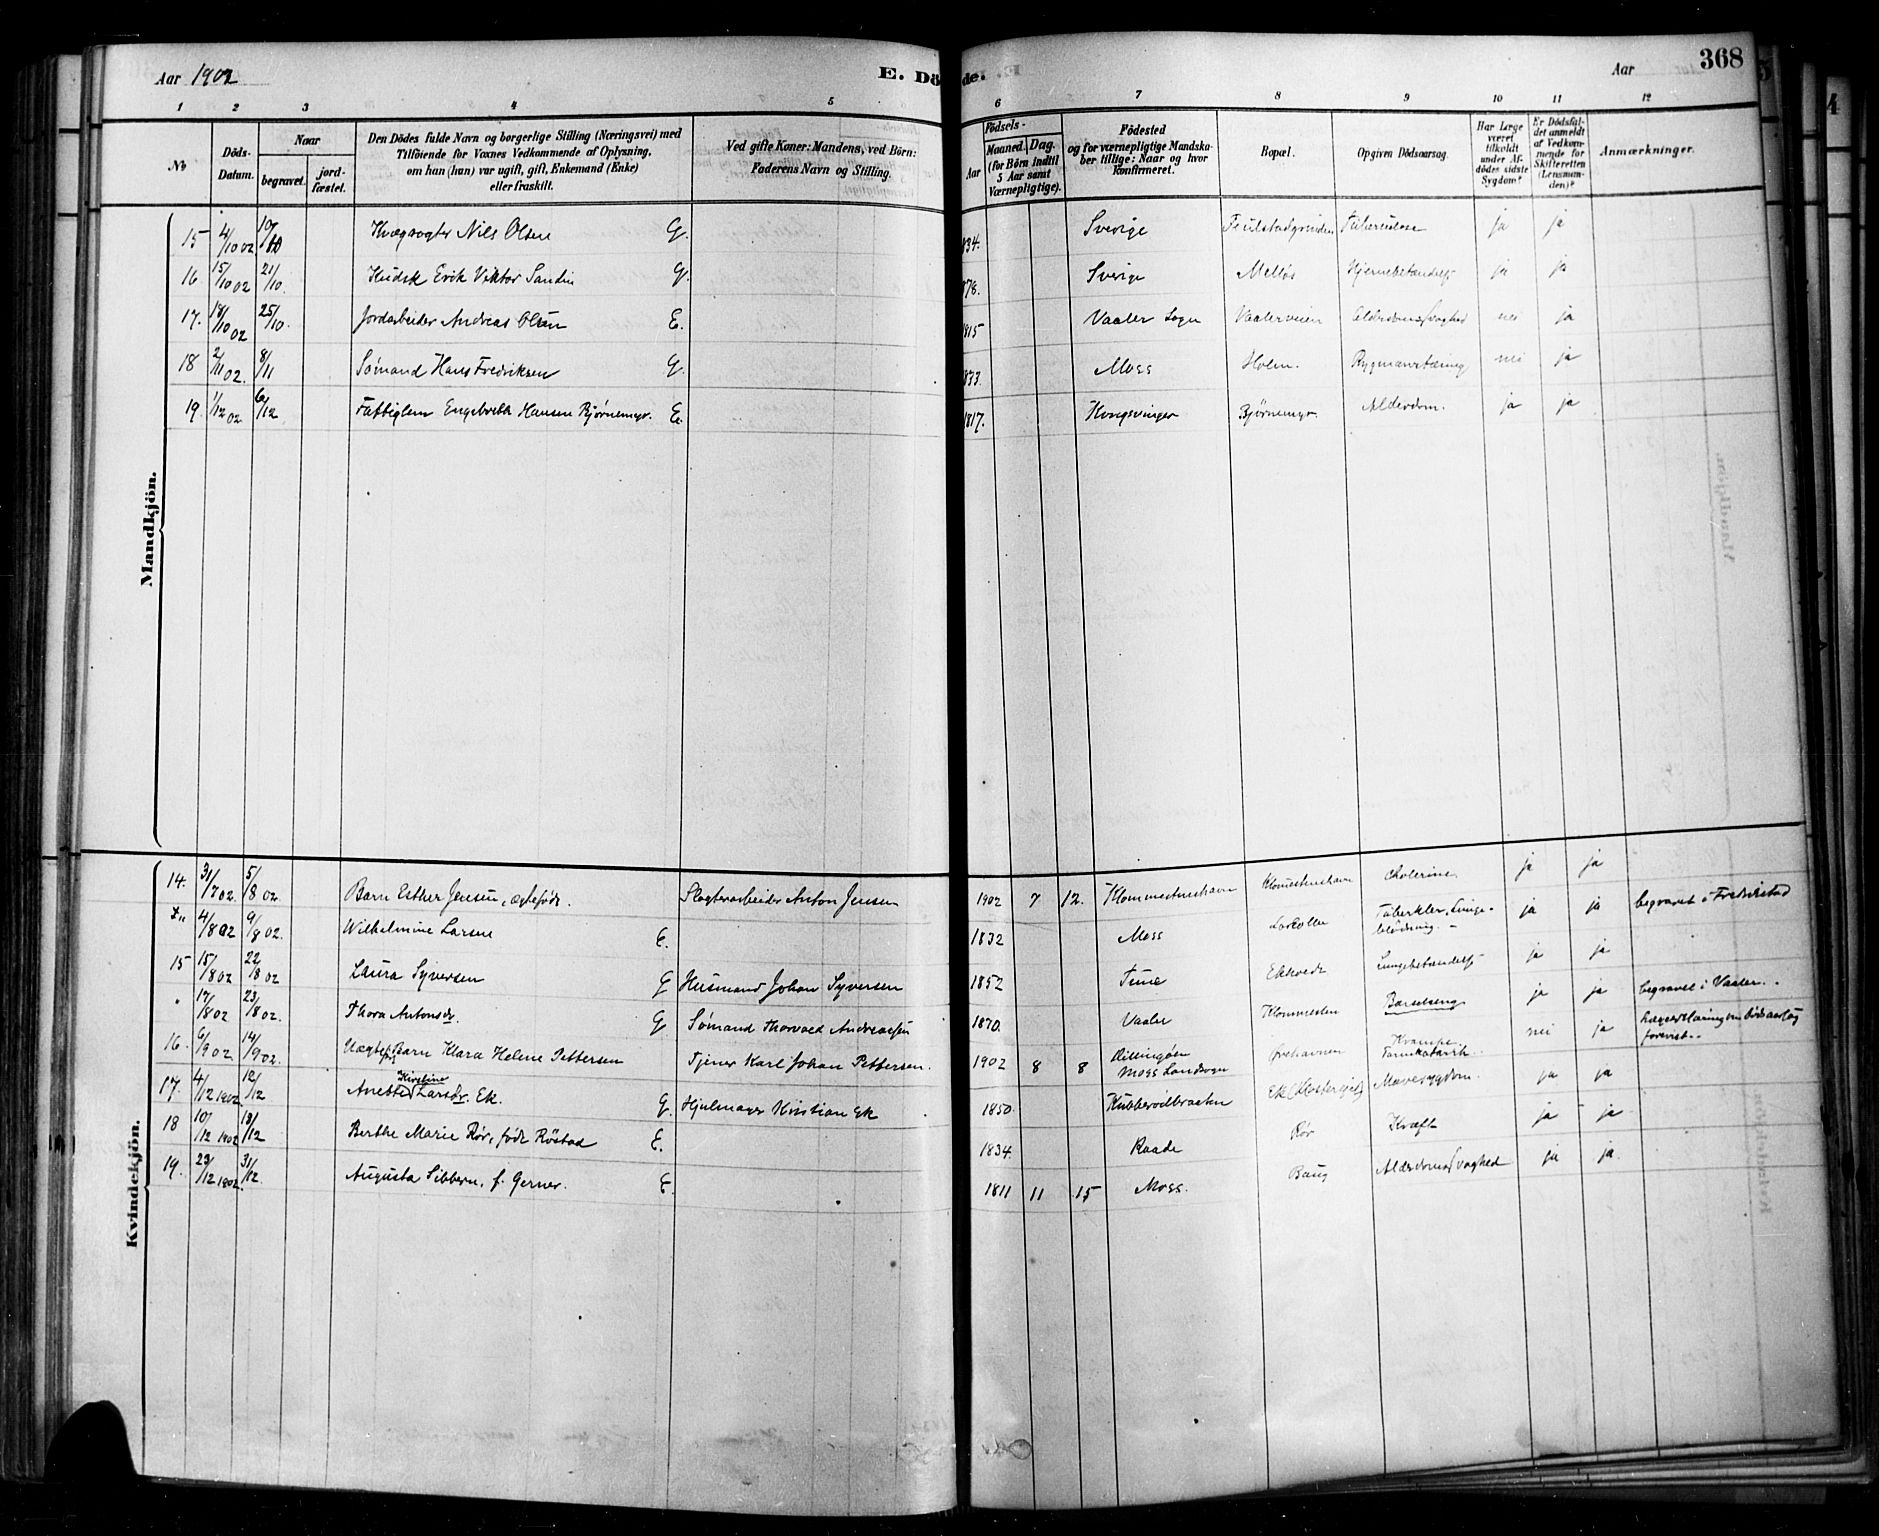 Aar 1902
E. Döde.
Aar
368
1 2 3 4 5 6 7 8 9 10 11 12
No
Döds-Datum.
Naar
begravet.
jord-fæstet.
Den Dödes fulde Navn og borgerlige Stilling (Næringsvei) med
Tilföiende for Voxnes Vedkommende af Oplysning,
om han (hun) var ugift, gift, Enkemand (Enke)
eller fraskilt.
Ved gifte Koner: Mandens, ved Börn:
Faderens Navn og Stilling.
Födsels-
Aar
Maaned. Dag.
(for Börn indtil
5 Aar samt
Værnepligtige).
Födested
og for værnepligtige Mandska-
ber tillige: Naar og hvor
konfirmeret.
Bopæl.
Opgiven Dödsaarsag.
Har Læge
været
tilkaldt
under Af-
dödes sidste
Sygdom?
Er Dödsfal-
det anmeldt
af Vedkom-
mende for
Skifteretten
(Lensman-
den)?
Anmærkninger.
Mandkjön.
15 4/10 02 10/10 Kvægrogter Nils Olsen G. 834. Sverige ja ja
16 15/10 02 21/10. Kudsk Erik Viktor Sandin G. 878. Sverige Melløs Hjernebetændelse ja ja
17. 18/10 02 25/10. Jordarbeider Andreas Olsen E. 1815 Vaaler Sogn Vaalerveien Alderdomssvaghed nei ja
18 2/11 02. 8/11 Sømand Hans Fredriksen G. 833. Moss Holen. Rygmarvstæring nei ja
19. 1/12 02 6/12 Fattiglem Engebreth Hansen Bjørnemyr. E. 1817. Kongsvinger Bjørnemyr. Alderdom. ja ja
Kvindekjön.
14. 31/7 02. 5/8 02. Barn Esther Jensen, ægtefødt. Anton Jensen 1902 7 12. Klommestenhavn Klommestenhavn Cholerine. ja ja
4/8 02 9/8 02. Wilhelmine Larsen E. 1832 Moss Tuberkler, Lunge-
blødning. ja ja begravet i Fredrikstad
15 15/8 02 22/8 02 Laura Syversen G Husmand Johan Syversen 1852 Tune Ekholt Lungebetændelse ja ja
" 17/8 02 23/8 02. Thora Antonsdr. G. Sømand Thorvald Andreassen 1870. Vaaler Klommesten Barselseng ja ja begravet i Vaaler.
16. 6/9 02. 14/9 02. Uægtef. Barn Klara Helene Pettersen Tjener Karl Johan Pettersen. 1902 8 8 Dillingøen
Moss Landsogn Ørehavnen Krampe
Tarmkatarrh. nei ja Lægeerklæring om Dødsaarsag
forevist.
17. 4/12 1902. 12/12 Anette Kirstine Larsdr. Ek. G. Hjulmager Kristian Ek 1850. Kubberødbraaten Ek (Klostergd) Mavesygdom. ja ja
18 10/12 1902 18/12 Berthe Marie Rør, født Røstad E. 1834. Raade Rør Kræft ja ja
19. 23/12 1902. 31/12. Augusta Sibbern, f. Gerner. E. 1811 11 15 Moss. Baug Alderdomssvaghed ja ja